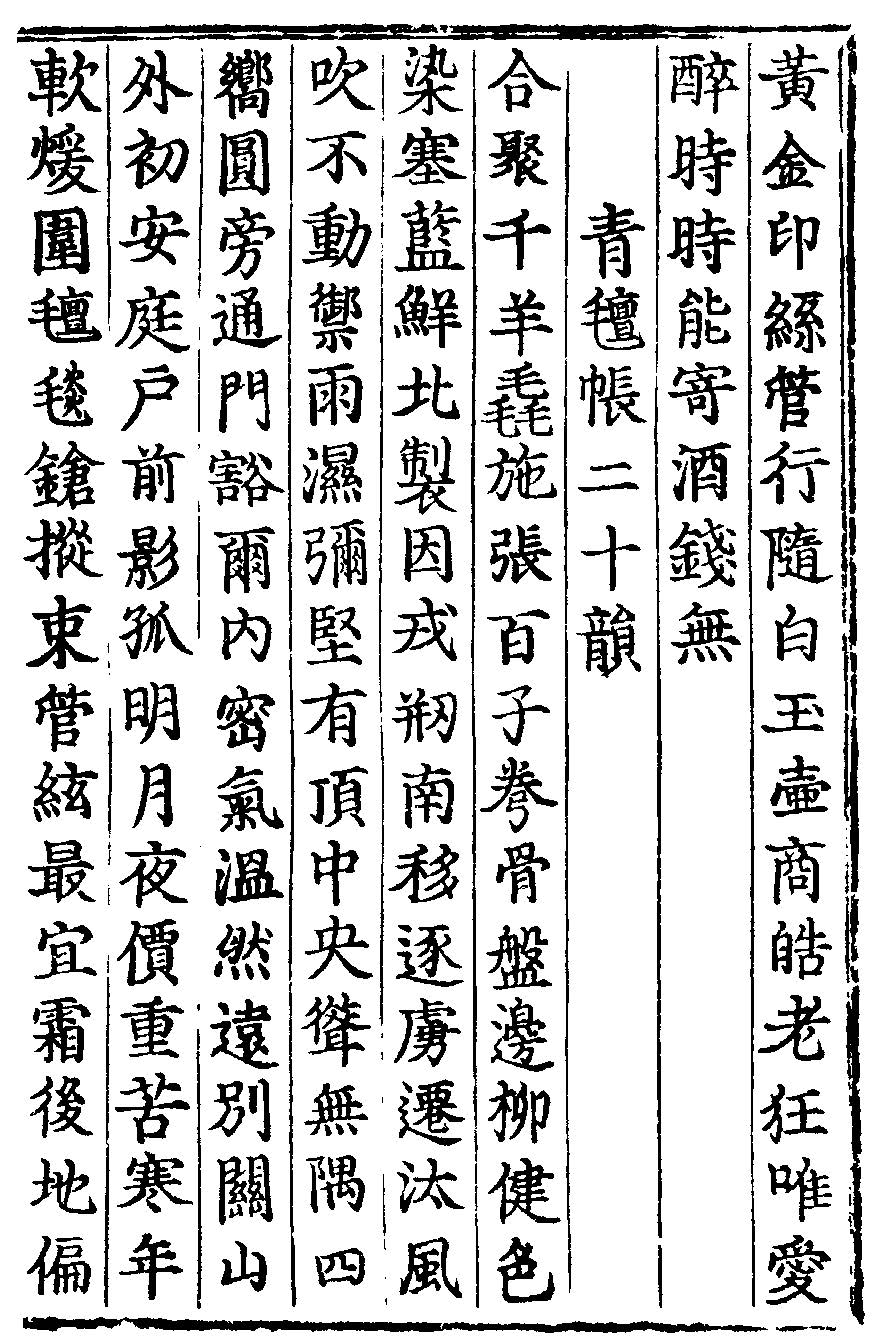 黃金印絲管行隨白玉壷商皓老狂唯愛
醉時時能寄酒錢無
青氊帳二十韻
合聚千羊毳施張百子弮骨盤邊柳健色
染塞藍鮮北製因戎刱南移逐虜遷汰風
吹不動禦雨濕彌堅有頂中央聳無隅四
嚮圓旁通門豁爾内密氣温然遠別關山
外初安庭戶前影孤明月夜價重苦寒年
軟煖圍氊毯鎗摐束管絃最宜霜後地偏